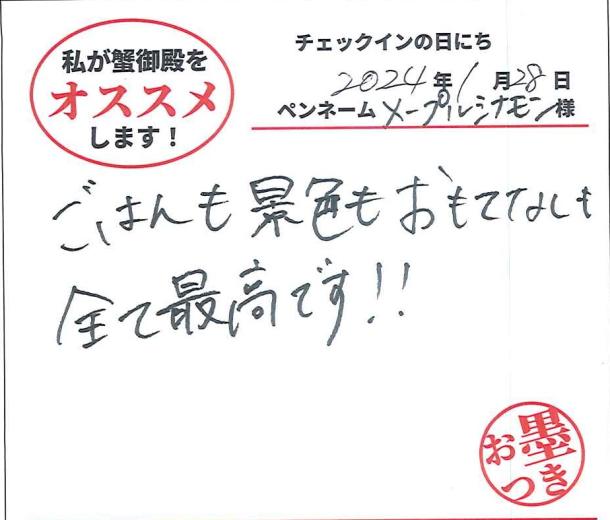 私が蟹御殿を
オススメ
します！
チェックインの日にち
2024年1月28日
ペンネーム メープルシナモン様
ごはんも景色もおもてなしも
全て最高です!!
お墨
つき